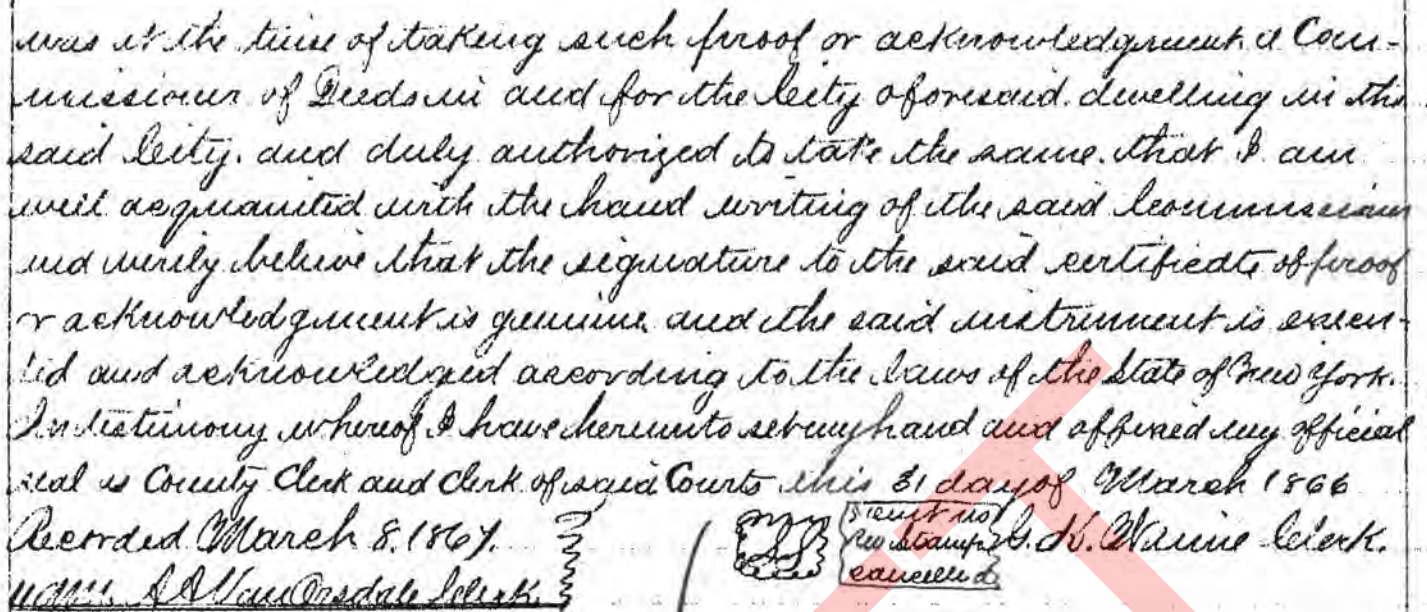 was at the time of taking such proof or acknowledgment a Com-
missioner of Deeds in and for the City aforesaid. dwelling in the
said City. and duly authorized to take the same. that I am
well acquainted with the hand writing of the said Commissioner
and verily believe that the signature to the said certificate of proof
or acknowledgment is genuine and the said instrument is execu-
ted and acknowledged according to the laws of the State of New York.
In testimony whereof I have hereunto set my hand and affixed my official
seal as County Clerk and Clerk of said Courts this 31 day of March 1866
Recorded March 8. 1867. 5 cent Rev Stamp cancelled Clerk.
Clerk.